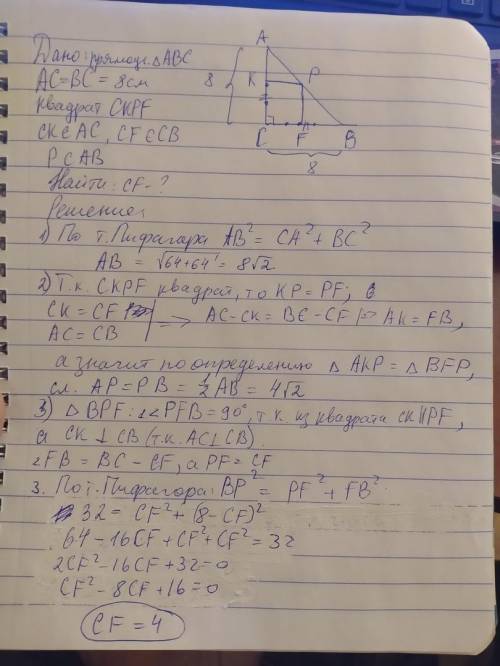 A
Дано: прямоуг. △ABC
AC=BC = 8см
8
K
P
квадрат CKPF
CK∈AC, CF∈CB
C
F
B
P∈AB
8
Найти: CF-?
Решение:
1) По т. Пифагора AB² = CA² + BC²
AB = √64+64 = 8√2
2) Т.к. CKPF квадрат, то KP = PF;
CK = CF
AC = CB
=> AC-CK = BC-CF => AK = FB,
а значит по определению △AKP = △BFP,
сл. AP = PB = ½AB = 4√2
3) △BPF: ∠PFB = 90°, т.к. из квадрата CKPF,
а CK ⊥ CB (т.к. AC ⊥ CB).
FB = BC - CF, а PF = CF
3. По т. Пифагора: BP² = PF² + FB²
32 = CF² + (8-CF)²
64 - 16CF + CF² + CF² = 32
2CF² - 16CF + 32 = 0
CF² - 8CF + 16 = 0
CF = 4